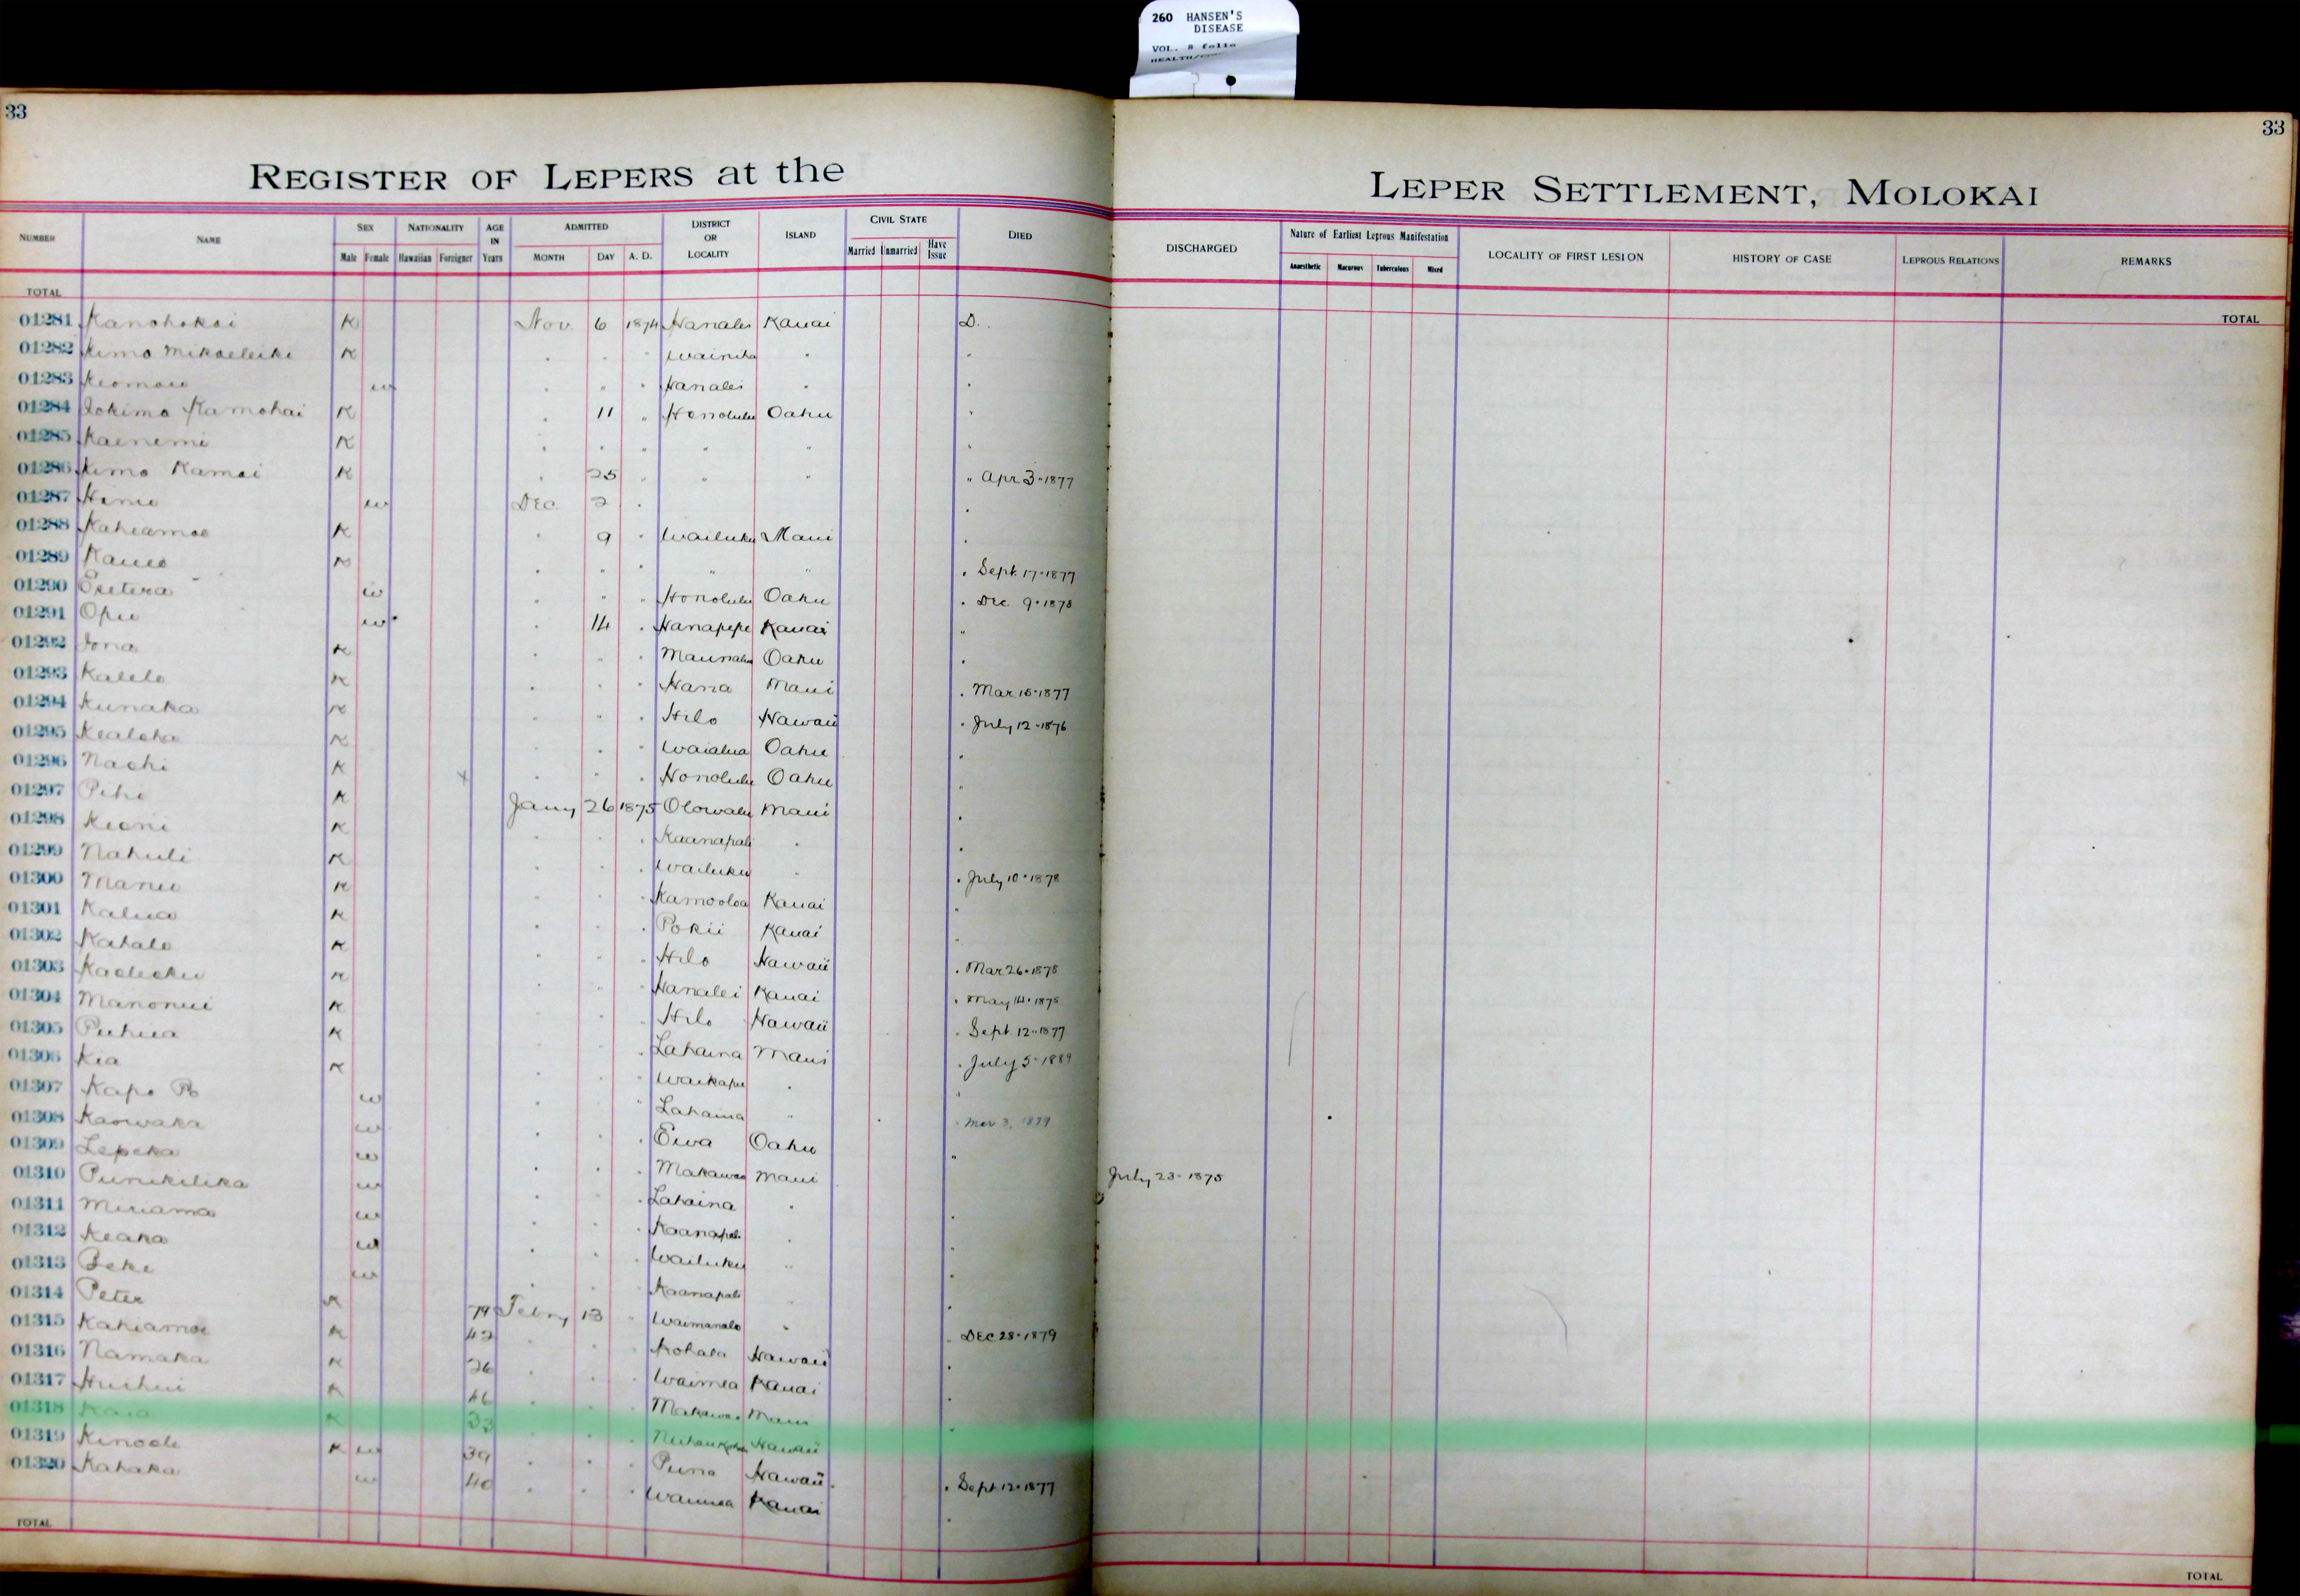 260 HANSEN'S
DISEASE
VOL. 8 folio
33
33
REGISTER OF LEPERS at the LEPER SETTLEMENT, MOLOKAI
NUMBER NAME SEX NATIONALITY AGE IN Years ADMITTED DISTRICT OR LOCALITY ISLAND CIVIL STATE DIED DISCHARGED Nature of Earliest Leprous Manifestation LOCALITY OF FIRST LESION HISTORY OF CASE LEPROUS RELATIONS REMARKS
Male Female Hawaiian Foreigner MONTH DAY A. D. Married Unmarried Have Issue Anaesthetic Macurous Tuberculous Mixed
TOTAL TOTAL
01281 Kanohokai K Nov. 6 1874 Hanalei Kauai D.
01282 Kimo Mikaeleiki K " " " Wainiha " "
01283 Keomau w " " " Hanalei " "
01284 Iokimo Kamohai K " 11 " Honolulu Oahu "
01285 Kaenemi K " " " " " "
01286 Kimo Kamai K " 25 " " " " Apr 3-1877
01287 w Dec 2 " "
01288 Kahiamoe K " 9 " Wailuku Maui "
01289 Kaueo K " " " " " " Sept. 17-1877
01290 w " " " Honolulu Oahu " Dec. 9-1878
01291 Opu w " 14 " Hanapepe Kauai "
01292 Iona K " " " Maunalua Oahu "
01293 Kalele K " " " Hana Maui " Mar 15-1877
01294 Kunaka K " " " Hilo Hawaii " July 12-1876
01295 Kealoha K " " " Waialua Oahu "
01296 Naohi K " " " Honolulu Oahu "
01297 Pihi K Jany 26 1875 Olowalu Maui "
01298 Keoni K " " " Kaanapali " "
01299 Nahuli K " " " Wailuku " " July 10-1878
01300 Manu K " " " Kamooloa Kauai "
01301 Kalua K " " " Pokii Kauai "
01302 Kahalo K " " " Hilo Hawaii " Mar 26-1878
01303 K " " " Hanalei Kauai " May 14-1875
01304 Manonui K " " " Hilo Hawaii " Sept 12-1877
01305 Puhua K " " " Lahaina Maui " July 5-1889
01306 Kia K " " " Waikapu " "
01307 Kapo w " " " Lahaina " " Mar 3, 1879
01308 Kaowaka w " " " Ewa Oahu "
01309 Lepeka w " " " Makawao Maui July 23-1875
01310 Punikilika w " " " Lahaina " "
01311 Miriama w " " " Kaanapali " "
01312 Keaka w " " " Wailuku " "
01313 Beke w " " " Kaanapali " "
01314 Peter K 79 Febry 13 " Waimanalo " " Dec 28-1879
01315 Kahiamoe K 42 " " " Kohala Hawaii "
01316 Namaka K 26 " " " Waimea Kauai "
01317 Huihui K 46 " " " Makawao Maui "
01318 K 33 " " " Hawaii
01319 Kinoole K w 39 " " " Puna Hawaii " Sept 12-1877
01320 Kahaka w 40 " " " Waimea Kauai "
TOTAL TOTAL